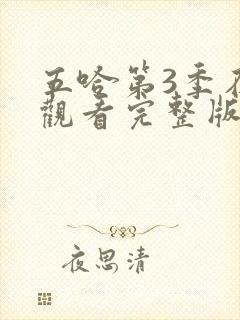 五哈第3季
觀看完整版
夜思清